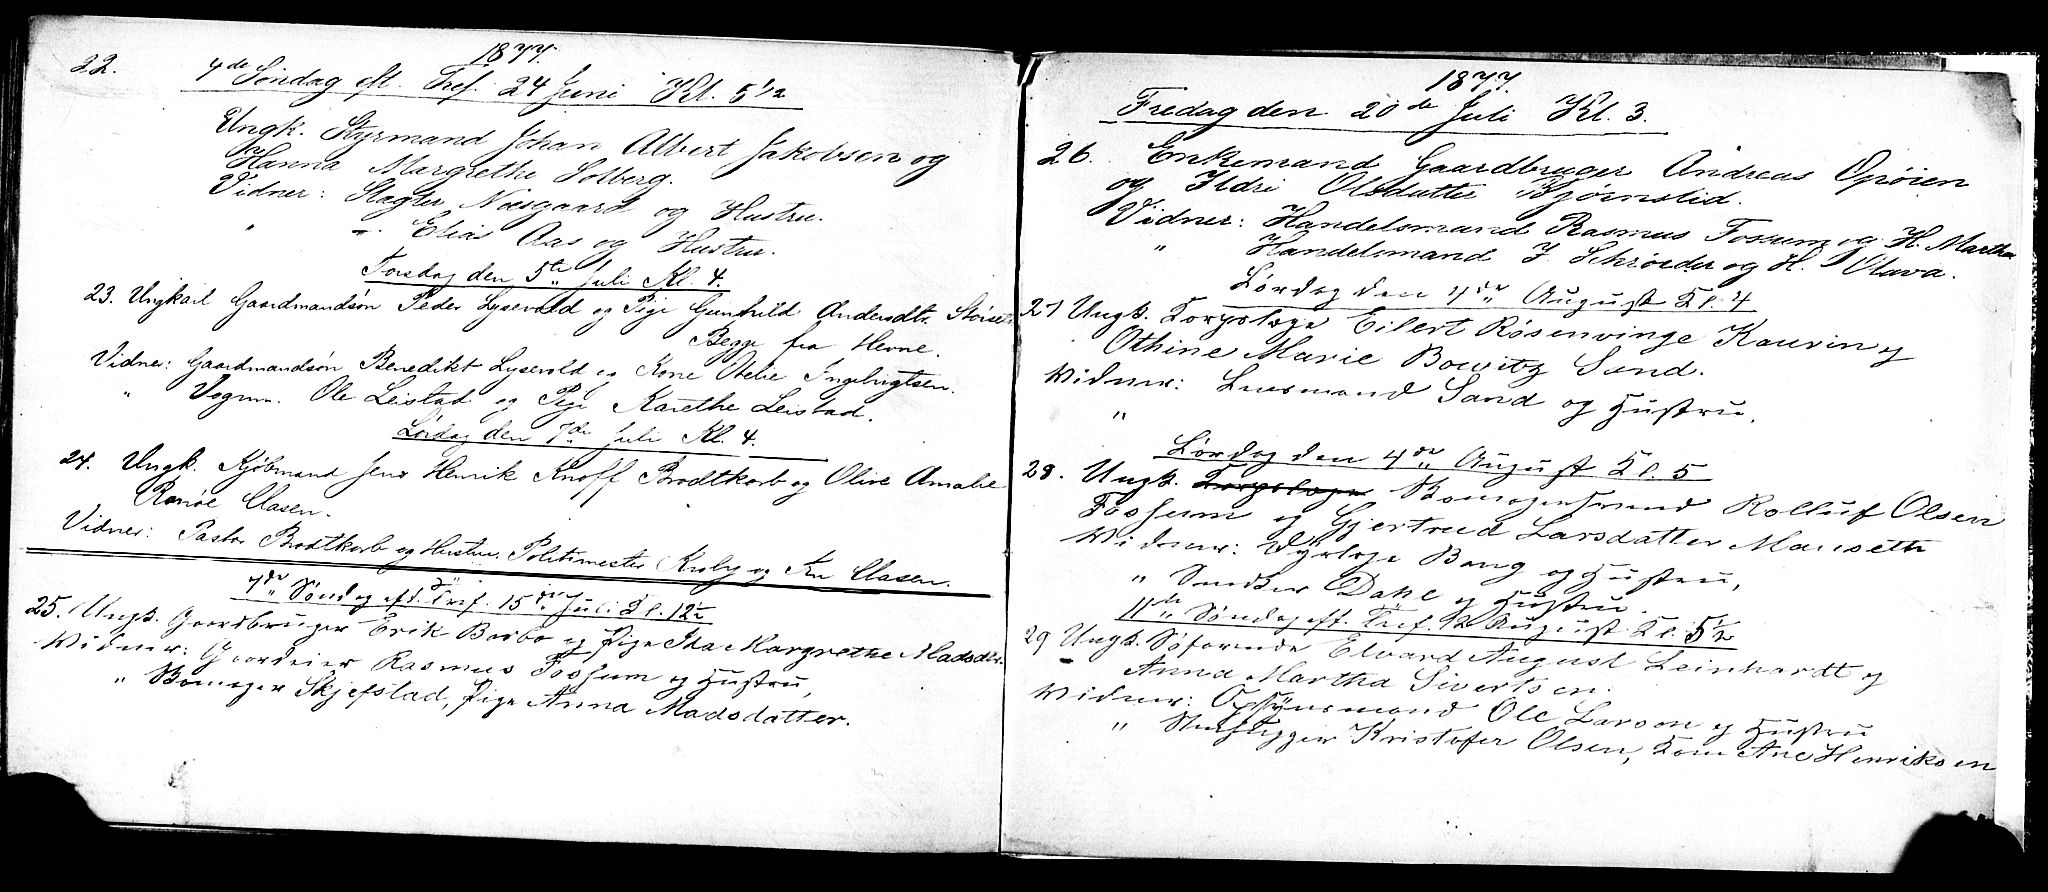 1877.
22. 4de Søndag eft. Tref. 24 Juni Kl. 5 1/2
Ungk. Styrmand Johan Albert Jakobsen og
Hanna Margrethe Solberg.
Vidner: Slagter Næsgaard og Hustru.
" -"- Elias Aas og Hustru.
Torsdag den 5te Juli Kl. 4.
23. Ungkarl Gaardmandsøn Peder Lysevold og Pige Gunhild Andersdtr.
Begge fra Hevne.
Vidner: Gaardmandsøn Benedikt Lysevold og Kone Otelie Ingebrigtsen.
" Ole Leistad og Pige Karethe Leistad.
Lørdag den 7de Juli Kl. 4.
24. Ungk. Kjøbmand Jens Henrik Knoff Brodtkorb og Olive Amalie
Ranøe Clasen.
Vidner: Pastor Brodtkorb og Hustru, Politimester Krøby og Fru Clasen.
7de Søndag eft. Tref. 15de Juli Kl. 12
25. Ungk. Gaardbruger Erik Barbo og Pige Ida Margrethe Madsdtr.
Vidner: Gaardeier Rasmus Fossum og Hustru,
" Skjefstad, Pige Anna Madsdatter.
1877.
Fredag den 20de Juli Kl. 3.
26. Enkemand Gaardbruger Andreas Opøien
og Ildri Olsdatter Bjørnslid.
Vidner: Handelsmand Rasmus Fossum og H. Martha
" Handelsmand J. Schrøder og H. Olava.
Lørdag den 4de August Kl. 4
27 Ungk. Korpslæge Eilert Røsenvinge Kaurin og
Othine Marie Bowitz Sand.
Vidner: Lensmand Sand og Hustru.
"
Lørdag den 4de August Kl. 5
28. Ungk. Korpslæge Rolluf Olsen
Fossum og Gjertrud Larsdatter Mauseth
Vidner: Dyrlæge Bang og Hustru,
" Snedker Dahl og Hustru.
11te Søndag eft. Tref. 12 August Kl. 5 1/2
29 Ungk. Søfarende Edvard August Leinhardt og
Anna Martha Sivertsen.
Vidner: Opsynsmand Ole Larson og Hustru
" Stenhugger Kristofer Olsen, Kone Ane Henriksen